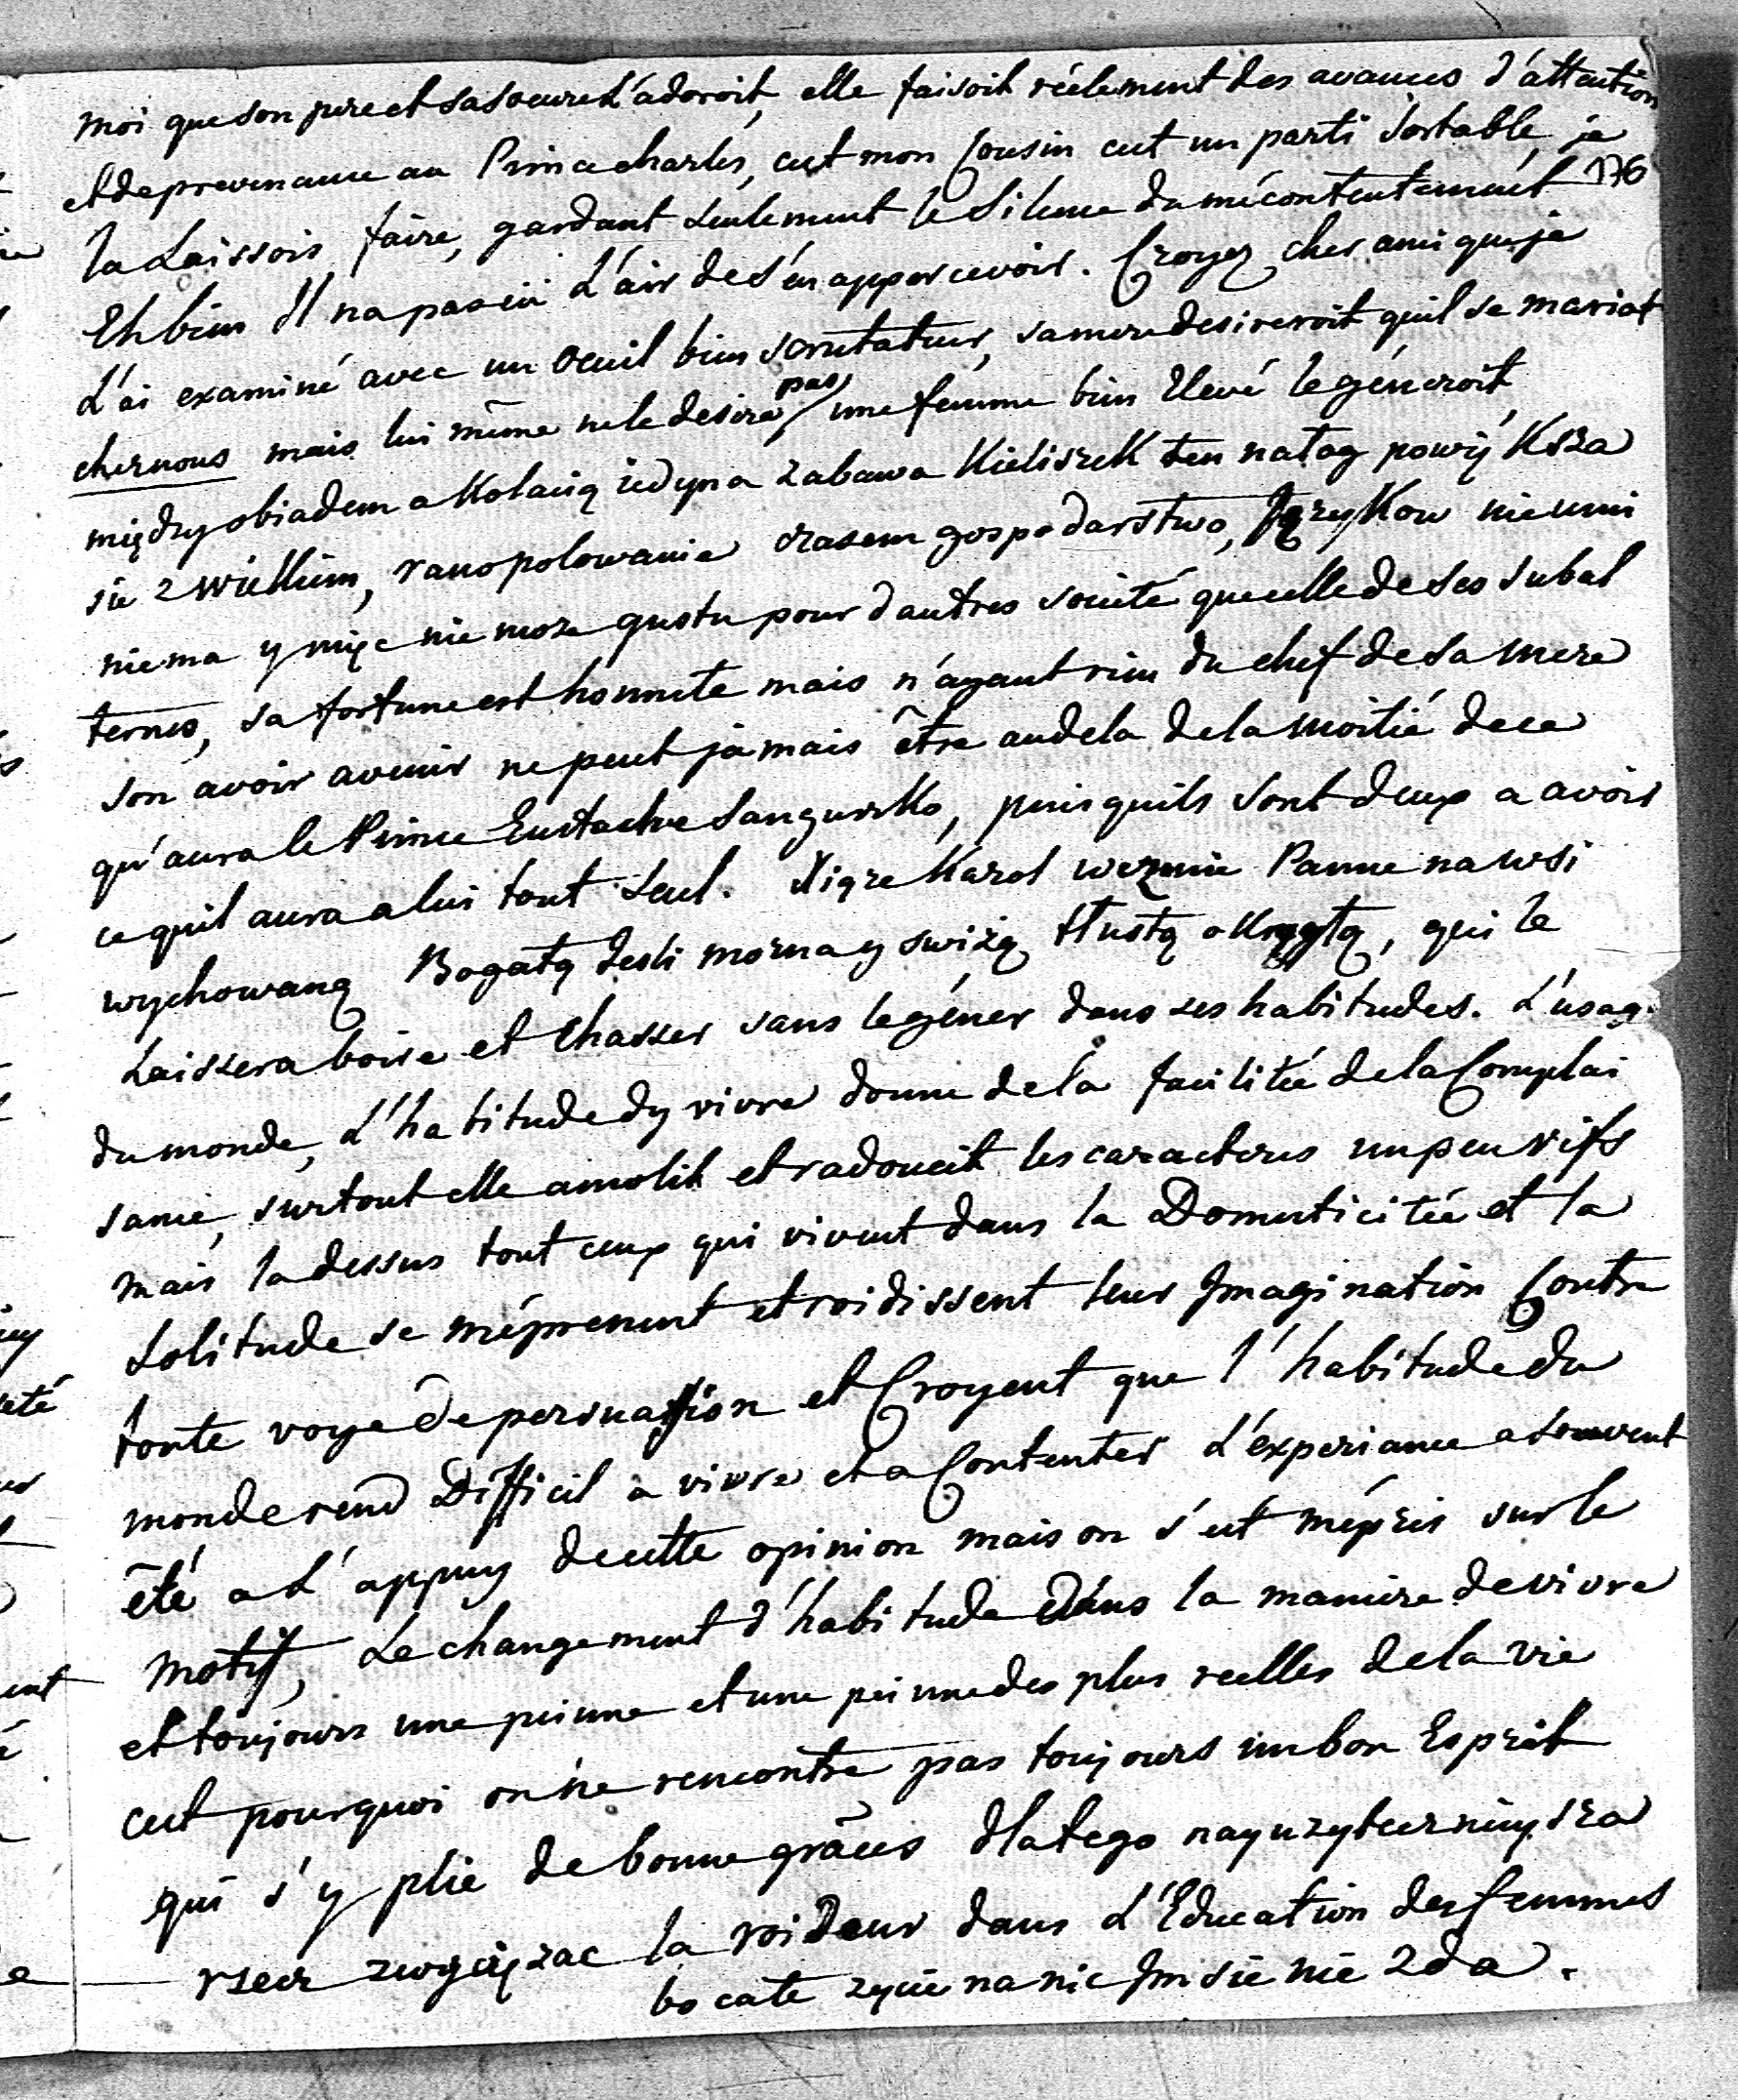 moi que son pere et sa soeure L'adoroit, elle faisoit réelement des avances d'attention
et de prevenance au Prince charles, cet mon Cousin cet un parti Sortable je
176
la Laissois faire, gardant seulement le Silence du mécontentement
Eh bien Il na pas eü L'air de s'en appercevoir. Croyez cher ami que je
L'ai examiné avec un oeuil bien scrutateur, sa mere desireroit quil se mariat
pas
chez nous mais lui même ne le desire une femme bien Elevé le géneroit
między obiadem a Kolacią iedyna zabawa Kieliszek ten nałog powięKsza
sie z wiekiem, rano polowanie czasem gospodarstwo, JęzyKow nieumi
niema y więc nie moze gustu pour dautres société que celle de ses subal
ternes, sa fortune est honnete mais n'ayant rien du chef de sa mere
son avoir avenir ne peut jamais être audela de la moitié de ce
qu'aura le Prince Eustache Sangusko, puis quils sont deux a avoir
ce quil aura a lui tout seul. Xiąze Karol wezmie Panne na wsi
wychowaną Bogatą Jesli mozna y swizą tłustą okrytą, qui le
Laissera boire et Chasser sans le géner dans ses habitudes. L'usag
du monde, L'habitude dy vivre donne de la facilitée de la Complai
sance, surtout elle amolit et radoucit les caracteres un peu vifs
mais la dessus tout ceux qui vivent dans la Domesticitée et la
Solitude se méprenent et roidissent leur Jmagination Contre
toute voye de persuassion et Croyent que l'habitude du
monde rend Difficil à vivre et a Contenter L'experiance a souvent
été a L'appuy de cette opinion mais on s'est mépris sur le
motif, Le changement d'habitude Dans la maniere de vivre
et toujours une peinne et une peinne des plus reelles de la vie
cet pourquoi on ne rencontre pas toujours un bon Esprit
qui s'y plie de bonne grâces dlatego nayuzytecznieysza
rzecz zwyciężac la roideur dans L'Education des femmes
bo całe zycie na nic Jm sie nie zda.